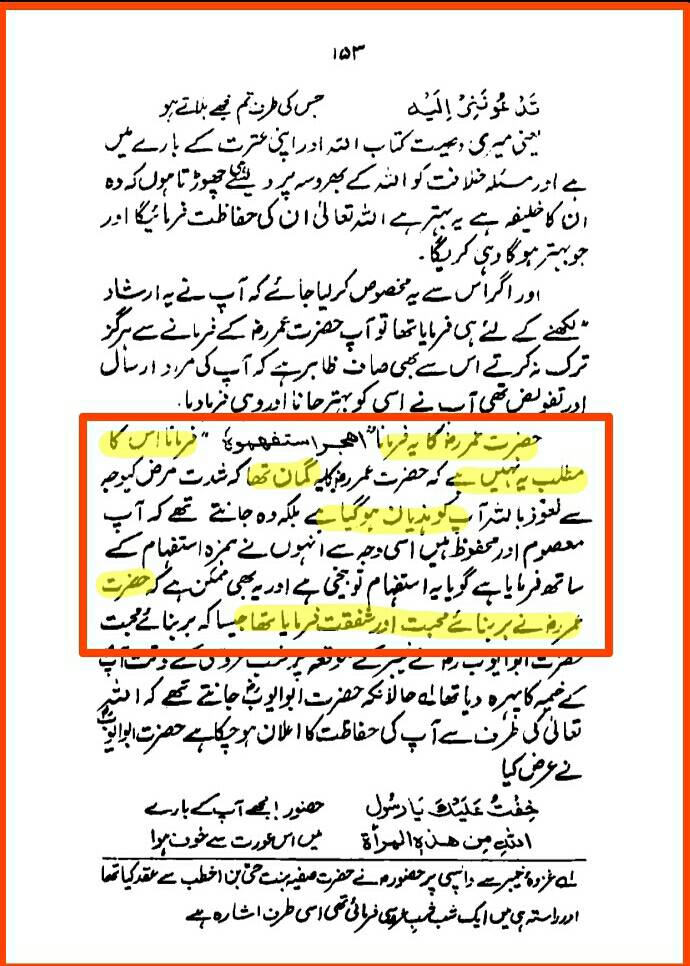 ۱۵۳
تَدْعُونَنِیْ اِلَیْهِ جس کی طرف تم مجھے بلاتے ہو
یعنی میری وصیت کتاب اللہ اور اپنی عترت کے بارے میں
ہے اور مسئلہ خلافت کو اللہ کے بھروسہ پر دیسے ہی چھوڑتا ہوں کہ وہ
ان کا خلیفہ ہے یہ بہتر ہے اللہ تعالیٰ ان کی حفاظت فرمائیگا اور
جو بہتر ہوگا وہی کریگا۔
اور اگر اس سے یہ مخصوص کر لیا جائے کہ آپ نے یہ ارشاد
لکھنے کے لئے ہی فرمایا تھا تو آپ حضرت عمر رضؓ کے فرمانے سے ہرگز
ترک نہ کرتے اس سے بھی صاف ظاہر ہے کہ آپ کی مراد ارسال
اور تفویض تھی آپ نے اسی کو بہتر جانا اور وہی فرما دیا۔
حضرت عمر رضؓ کا یہ فرمانا "اھجر استفھموہ" فرمانا اس کا
مطلب یہ نہیں ہے کہ حضرت عمر رضؓ کا یہ گمان تھا کہ شدت مرض کیوجہ
سے نعوذ باللہ آپ کو ہذیان ہو گیا ہے بلکہ وہ جانتے تھے کہ آپ
معصوم اور محفوظ ہیں اسی وجہ سے انہوں نے ہمزہ استفہام کے
ساتھ فرمایا ہے گویا یہ استفہام توبیخی ہے اور یہ بھی ممکن ہے کہ حضرت
عمر رضؓ نے بر بنائے محبت اور شفقت فرمایا تھا جیسا کہ بر بنائے محبت
حضرت ابو ایوب رضؓ نے خیبر کے موقعہ پر شب عروسی کے وقت آپ
کے خیمہ کا پہرہ دیا تھا ؎۱ حالانکہ حضرت ابو ایوبؓ جانتے تھے کہ اللہ
تعالیٰ کی طرف سے آپ کی حفاظت کا اعلان ہو چکا ہے حضرت ابو ایوبؓ
نے عرض کیا
خِفْتُ عَلَیْكَ یَا رَسُولَ حضور! مجھے آپ کے بارے
اللّٰهِ مِنْ هٰذِهِ الْمَرْأَة میں اس عورت سے خوف ہوا
؎۱ غزوۂ خیبر سے واپسی پر حضور ؐ نے حضرت صفیہ بنت حیّ بن اخطب سے عقد کیا تھا
اور راستہ ہی میں ایک شب شب عروسی فرمائی تھی اسی طرف اشارہ ہے